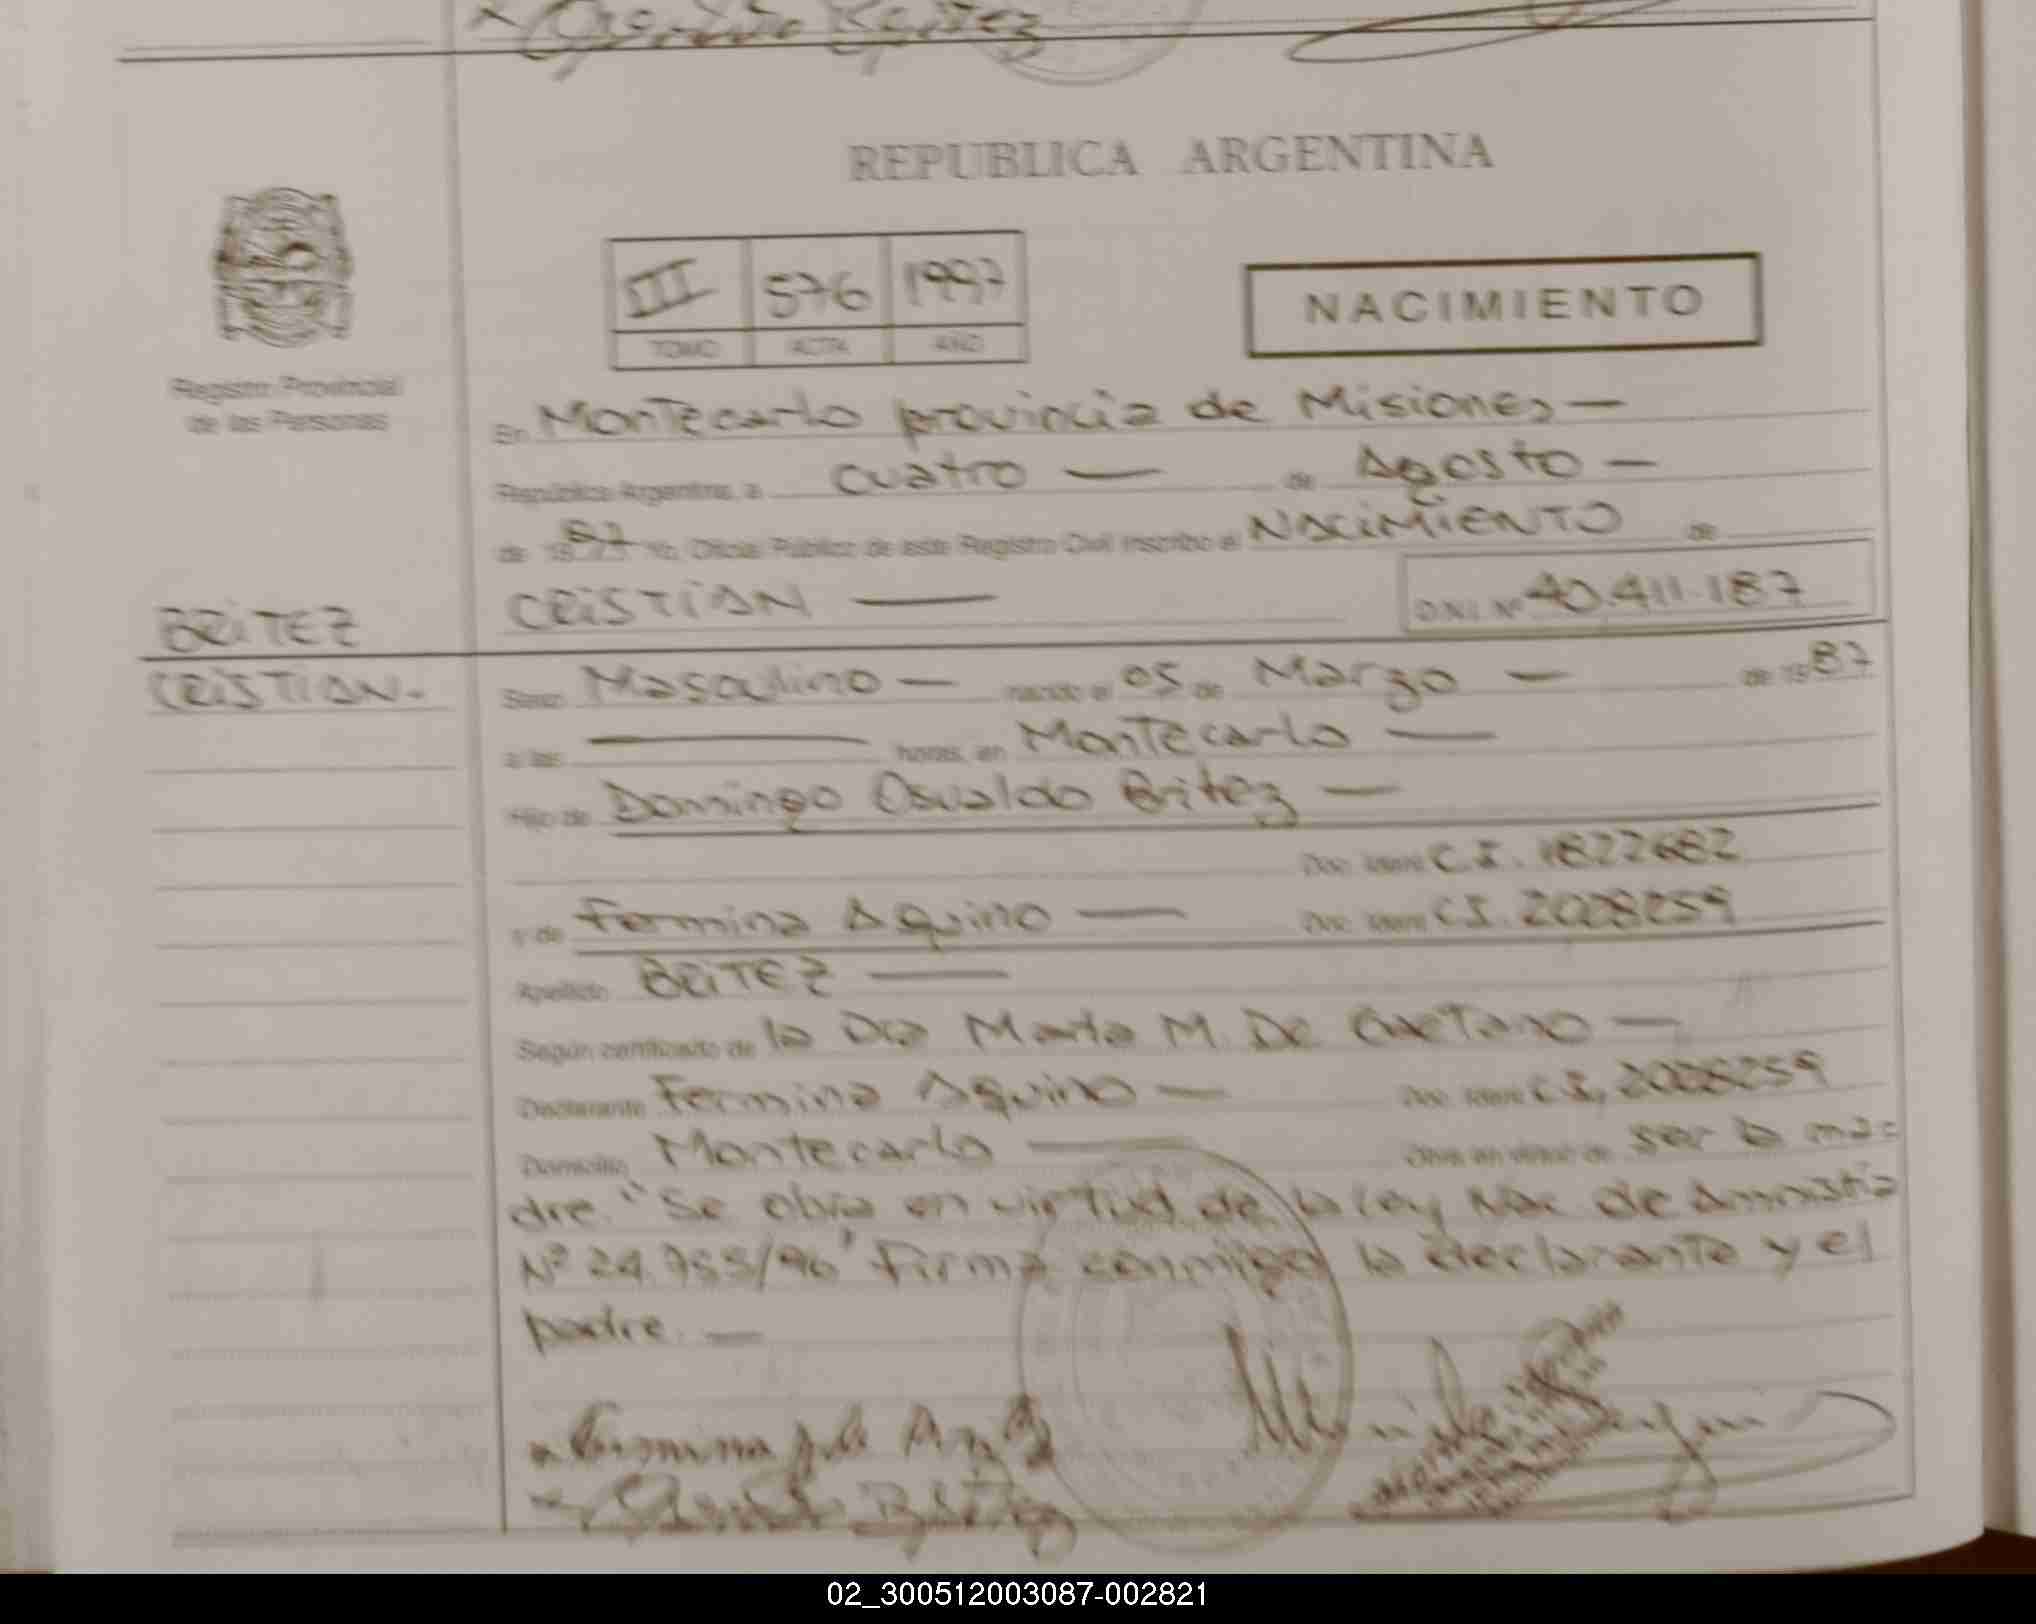 REPUBLICA ARGENTINA
III 576 1997
TOMO ACTA AÑO
NACIMIENTO
Registro Provincial
de las Personas
En Montecarlo provincia de Misiones —
República Argentina, a cuatro — de Agosto —
de 19 97 Yo, Oficial Público de este Registro Civil inscribo el NACIMIENTO de
BRITEZ
CRISTIAN —
D.N.I. Nº 40.411.187
CRISTIAN.-
Sexo Masculino — nacido el 05 de Marzo — de 19 87
a las — horas, en Montecarlo —
Hijo de Domingo Osvaldo Britez —
Doc. Ident. C.I. 1822682
y de Fermina Aquino — Doc. Ident. C.I. 2008259
Apellido BRITEZ —
Según certificado de la Dra Marta M. De Caetano —
Declarante Fermina Aquino — Doc. Ident. C.I. 2008259
Domicilio Montecarlo — Obra en virtud de ser la ma-
dre. "Se obra en virtud de la ley Nac de Amnistía
Nº 24.755/96" Firma conmigo la declarante y el
padre. —
02_300512003087-002821